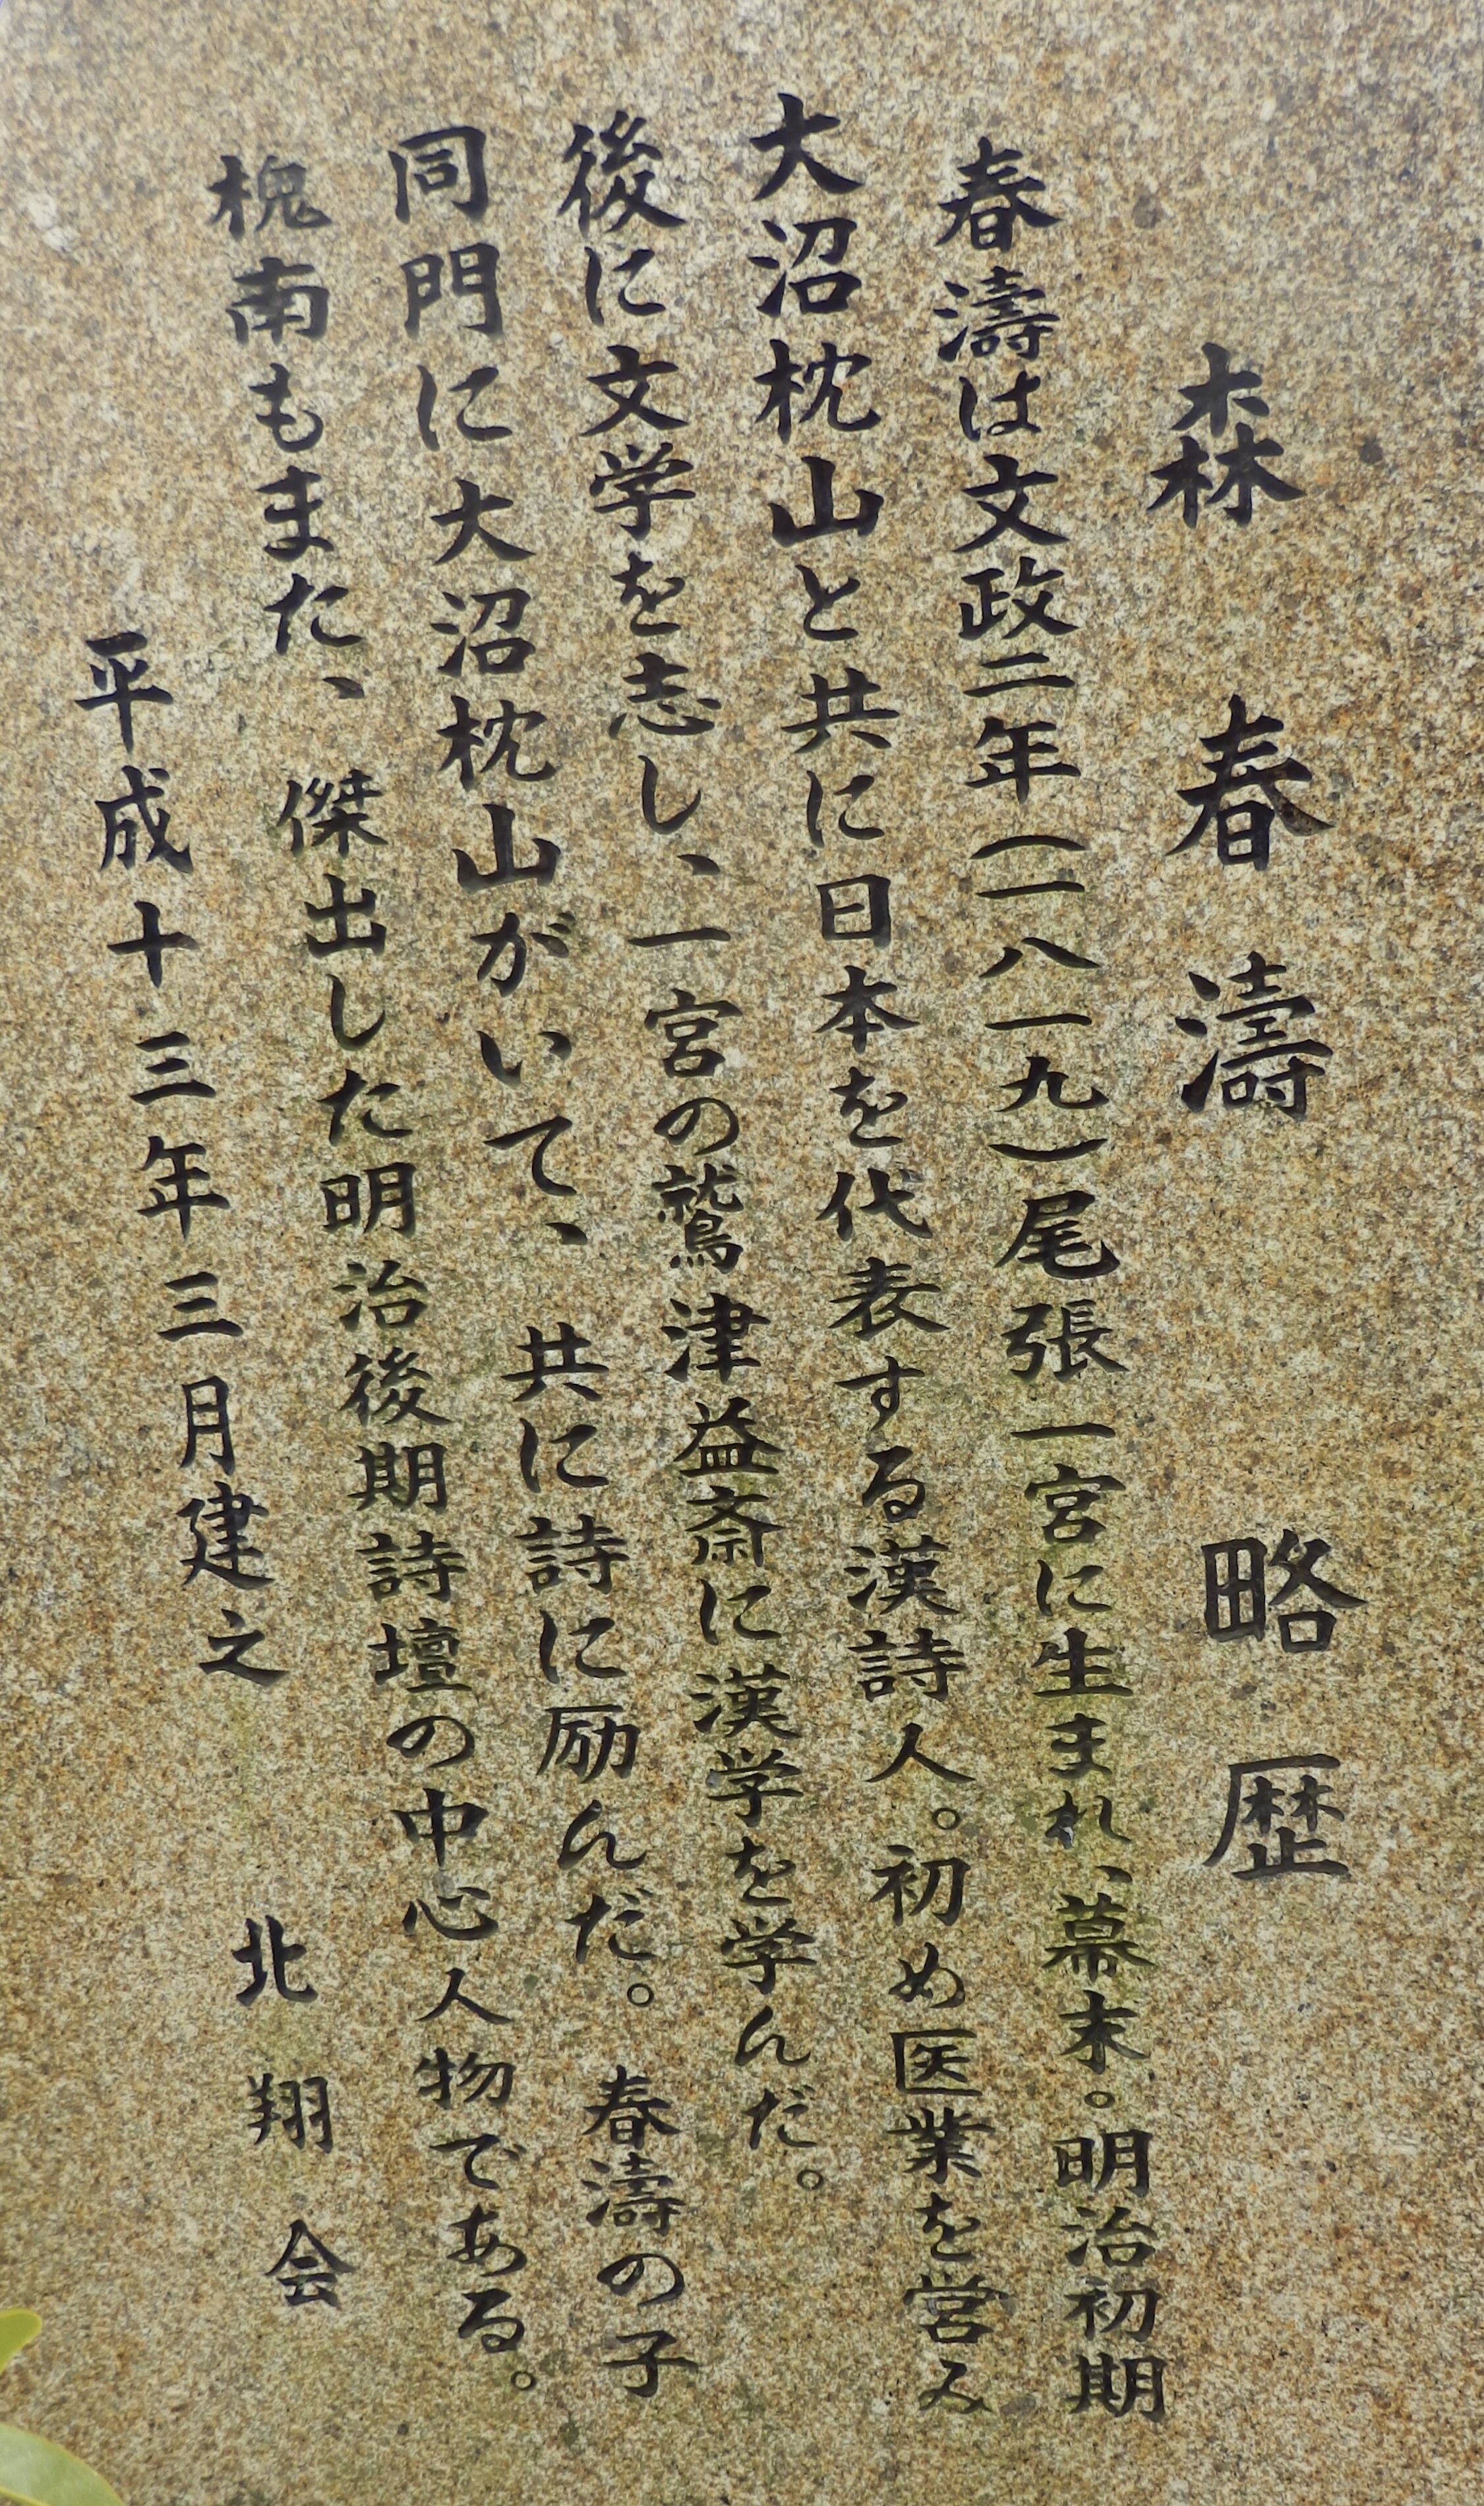 森春濤 略歴
春濤は文政二年(一八一九)尾張一宮に生まれ、幕末。明治初期
大沼枕山と共に日本を代表する漢詩人。初め医業を営み
後に文学を志し、一宮の鷲津益斎に漢学を学んだ。
同門に大沼枕山がいて、共に詩に励んだ。春濤の子
槐南もまた、傑出した明治後期詩壇の中心人物である。
平成十三年三月建之 北翔会